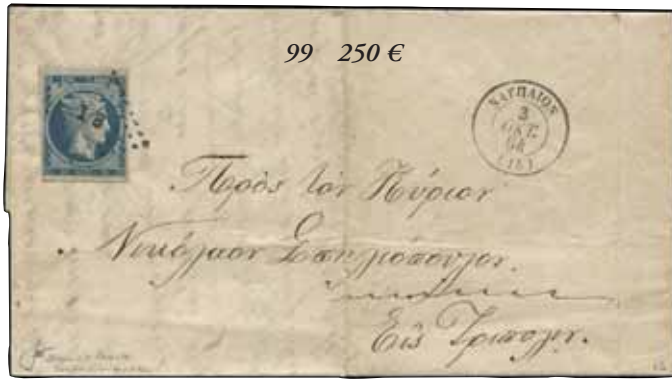 99 250 €
ΝΑΥΠΛΙΟΝ
3
ΟΚΤ.
(15)
Πρὸς τὸν Κύριον
Νικόλαον Σπηλιόπουλον.
Εἰς Τρίπολιν.